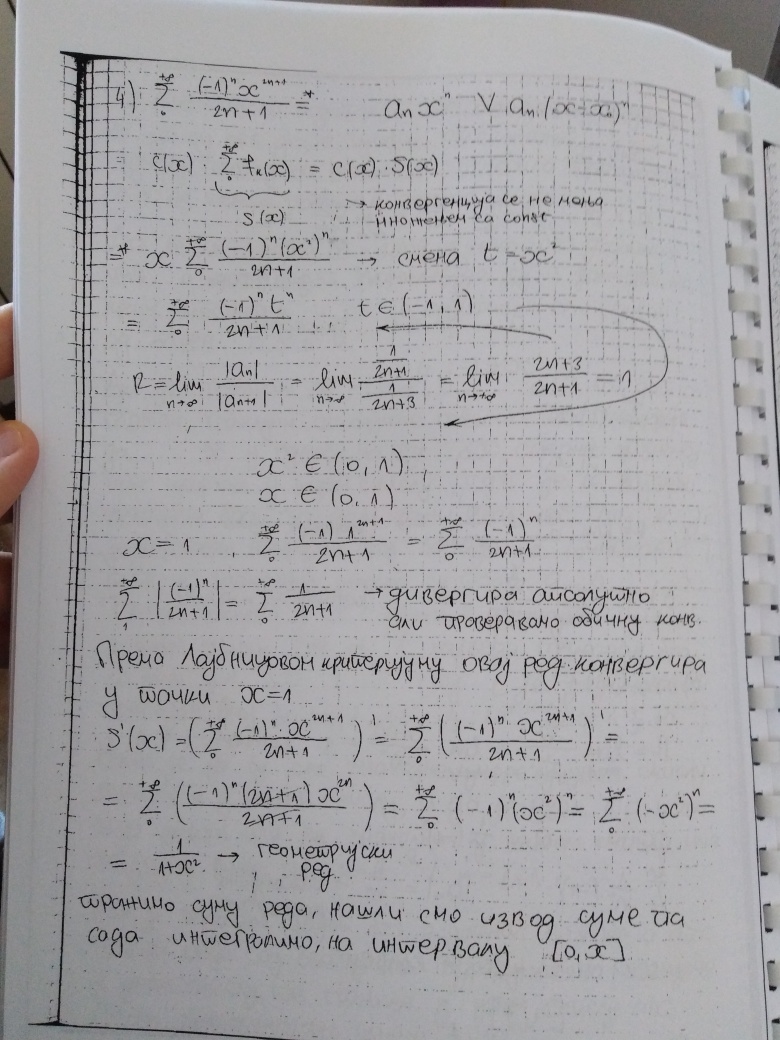 4) $\sum_{0}^{+\infty} \frac{(-1)^n x^{2n+1}}{2n+1} \stackrel{*}{=}$ $a_n x^n \lor a_n (x-x_0)^n$
= $c(x) \cdot \underbrace{\sum_{0}^{+\infty} f_n(x)}_{S(x)} = c(x) \cdot S(x)$
→ конвергенција се не мења
множењем са const
$\stackrel{*}{=} x \sum_{0}^{+\infty} \frac{(-1)^n (x^2)^n}{2n+1}$ → смена $t = x^2$
= $\sum_{0}^{+\infty} \frac{(-1)^n t^n}{2n+1}$ $t \in (-1, 1)$
$R = \lim_{n\to\infty} \frac{|a_n|}{|a_{n+1}|} = \lim_{n\to\infty} \frac{\frac{1}{2n+1}}{\frac{1}{2n+3}} = \lim_{n\to+\infty} \frac{2n+3}{2n+1} = 1$
$x^2 \in (0, 1)$
$x \in (0, 1)$
$x = 1$ $\sum_{0}^{+\infty} \frac{(-1) 1^{2n+1}}{2n+1} = \sum_{0}^{+\infty} \frac{(-1)^n}{2n+1}$
$\sum_{1}^{+\infty} \left|\frac{(-1)^n}{2n+1}\right| = \sum_{0}^{+\infty} \frac{1}{2n+1}$ → дивергира апсолутно
али проверавамо обичну конв.
Према Лајбницовом критеријуму овај ред конвергира
у тачки $x = 1$
$S'(x) = \left(\sum_{0}^{+\infty} \frac{(-1)^n \cdot x^{2n+1}}{2n+1}\right)' = \sum_{0}^{+\infty} \left(\frac{(-1)^n x^{2n+1}}{2n+1}\right)' =$
= $\sum_{0}^{+\infty} \left(\frac{(-1)^n (2n+1) x^{2n}}{2n+1}\right) = \sum_{0}^{+\infty} (-1)^n (x^2)^n = \sum_{0}^{+\infty} (-x^2)^n =$
= $\frac{1}{1+x^2}$ → геометријски
ред
тражимо суму реда, нашли смо извод суме па
сада интегралимо, на интервалу $[0, x]$